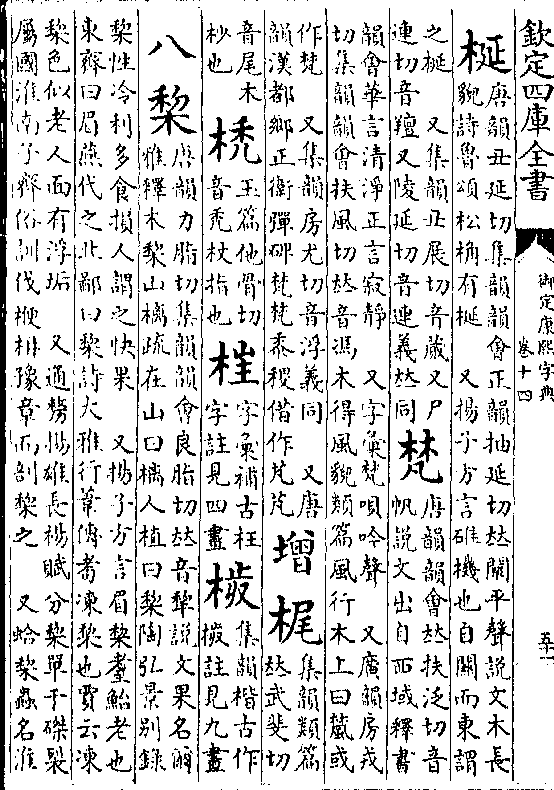 欽定四庫全書
御定康熙字典
卷十四
五十一
梴唐韻丑延切集韻韻會正韻抽延切𠀤闡平聲說文木長
貌詩魯頌松桷有梴 又揚子方言碓機也自關而東謂
之梴 又集韻丑展切音蕆又尸
連切音羶又陵延切音連義𠀤同 梵唐韻韻會𠀤扶泛切音
帆說文出自西域釋書
韻會華言清淨正言寂靜 又字彙梵唄吟聲 又廣韻房戎
切集韻韻會扶風切𠀤音馮木得風貌類篇風行木上曰䒫或
作梵 又集韻房尤切音浮義同 又唐
韻漢都鄉正衛彈碑梵梵黍稷借作芃芃 增 梶集韻類篇
𠀤武斐切
音尾木
杪也 梲玉篇他骨切
音禿杖指也 𣒸字彙補古枉
字註見四畫 椴集韻楷古作
椴註見九畫
八 棃唐韻力脂切集韻韻會良脂切𠀤音犂說文果名爾
雅釋木棃山樆疏在山曰樆人植曰棃陶弘景別錄
棃性冷利多食損人謂之快果 又揚子方言眉棃耋鮐老也
東齊曰眉燕代之北鄙曰棃詩大雅行葦傳耉凍棃也賈云凍
棃色似老人面有浮垢 又通剺揚雄長楊賦分棃單于磔裂
屬國淮南子齊俗訓伐楩枏豫章而剖棃之 又蛤棃蟲名淮